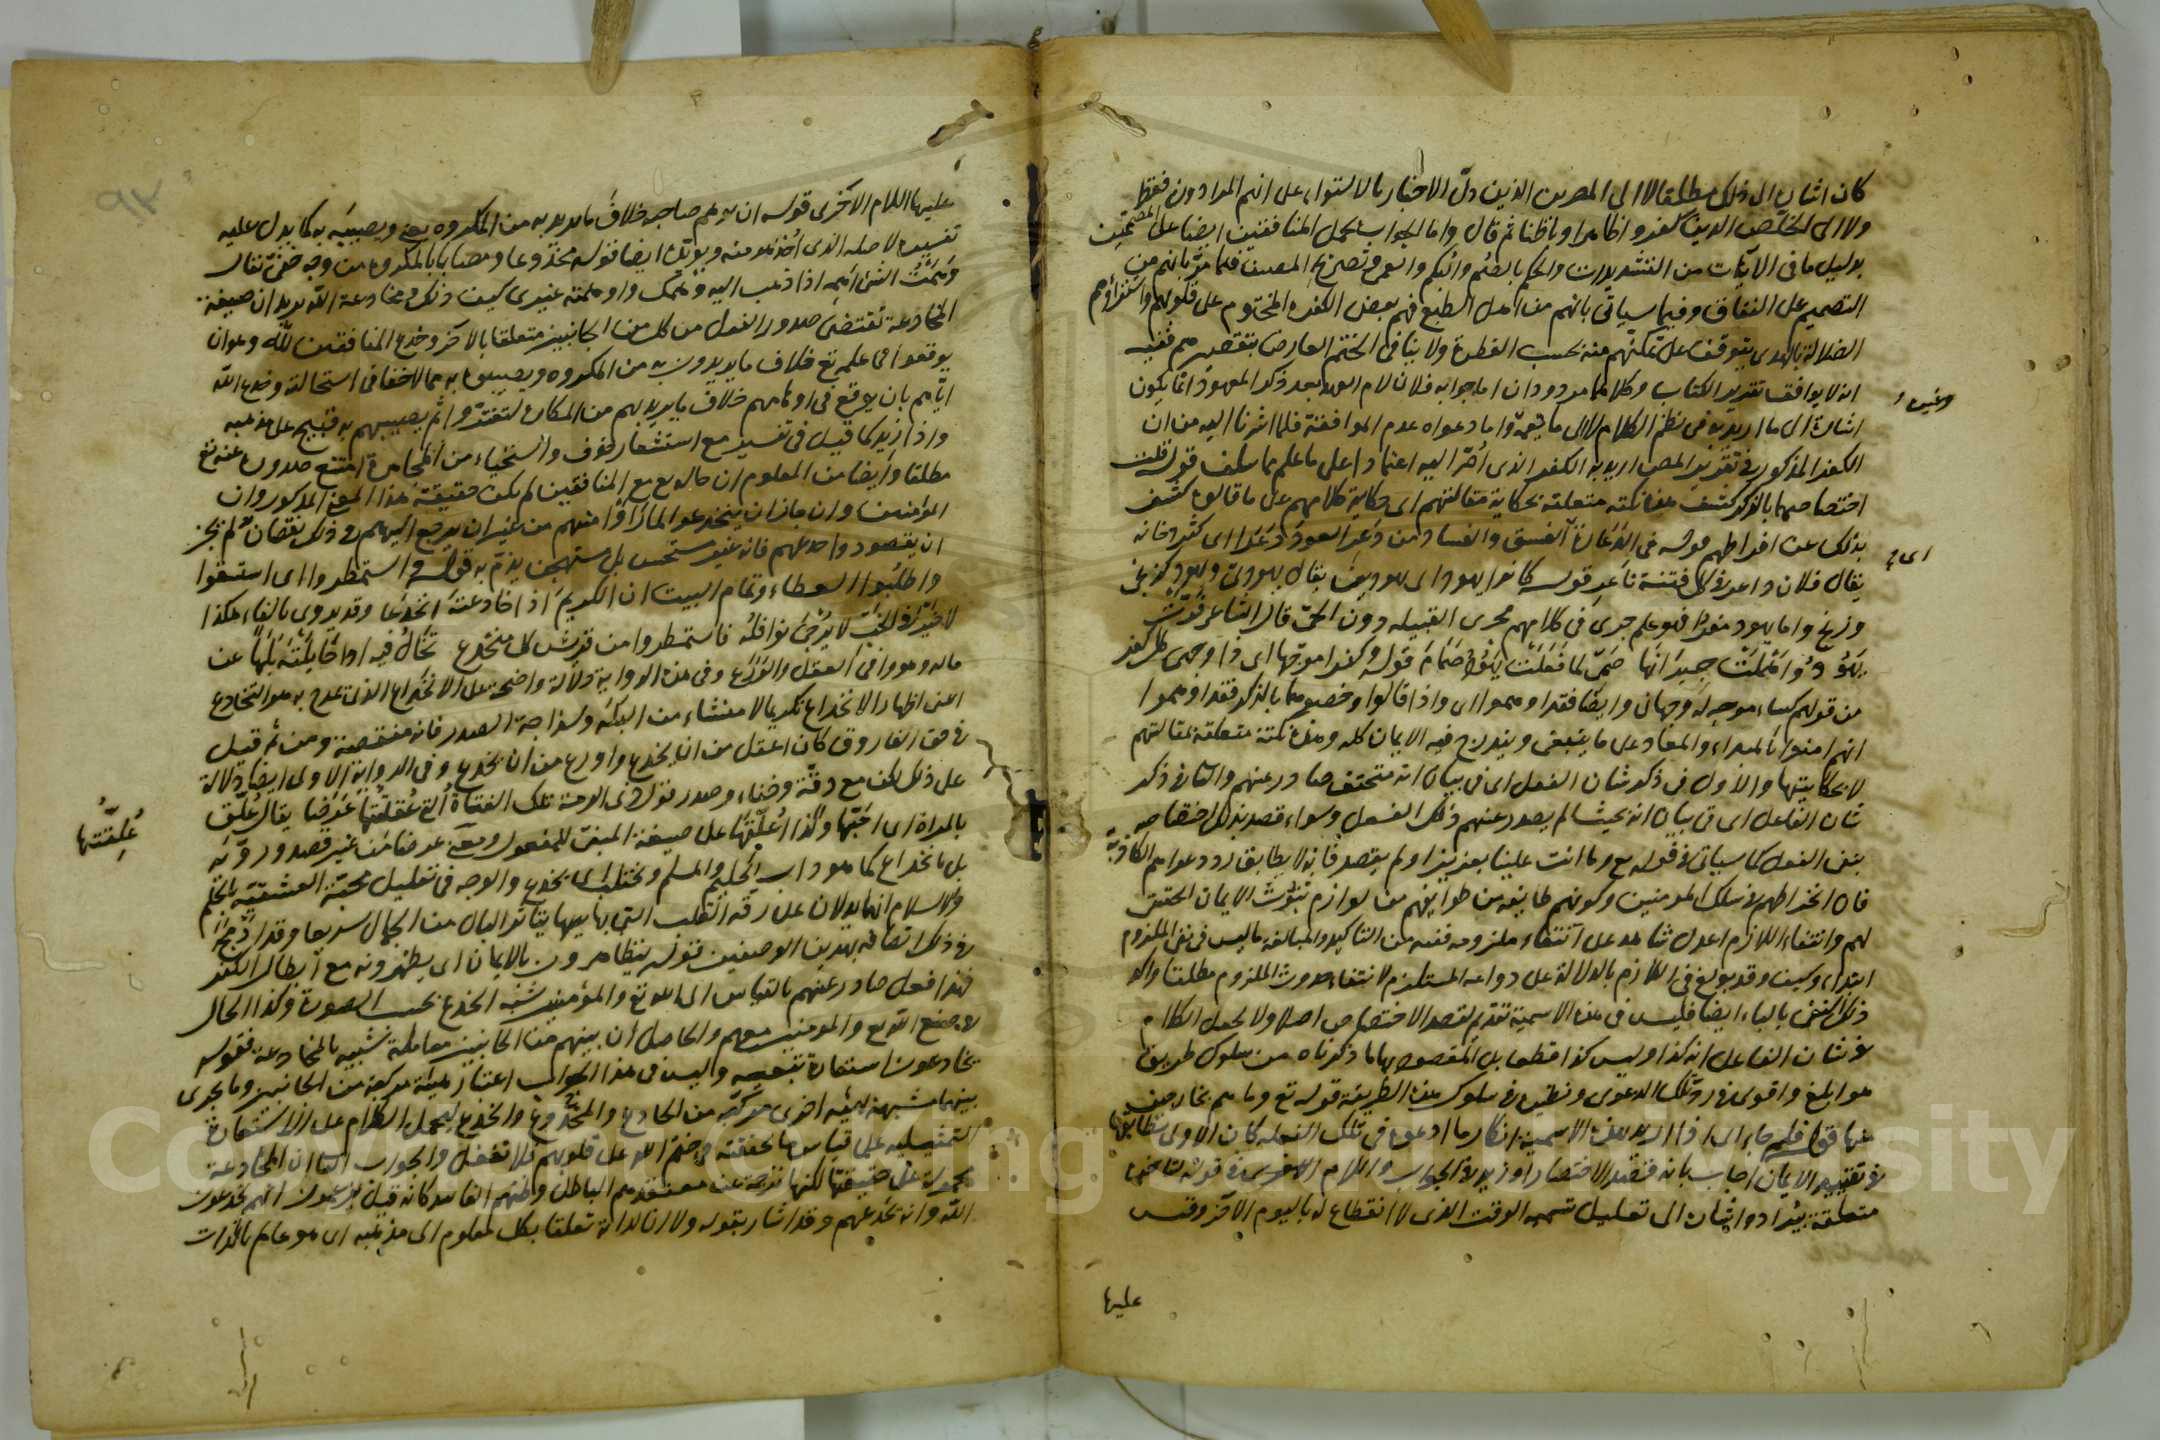 كان اشارة الى ذلك مطلقا لا الى المصرين الذين دلّ الاخبار بالاستواء على انهم المرادون فقط
ولا الى الخلّص الذين كفروا ظاهرا وباطنا ثم قال واما الجواب بحمل المنافقين ايضا على المصمّمين
بدليل ما فى الآيات من التشديدات والحكم بالصم والبكم والعمى وتصريح المصنف فيما مرّ بانهم من
التصميم على النفاق وفيما سيأتى بانهم من اهل الطبع فهم بعض الكفرة المختوم على قلوبهم واشتراؤهم
الضلالة بالهدى يتوقف على تمكنهم منه بحسب الفطرة ولا ينافى الختم العارض بتقصيرهم ففيه
انه لا يوافق تقرير الكتاب وكلاهما مردودان اما جوابه فلان لام العهد بعد ذكر المعهود انما يكون
اشارة الى ما اريد به فى نظم الكلام لا الى ما يعمّه واما دعواه عدم الموافقة فلما اشرنا اليه من ان
الكفر المذكور فى تقرير المصنف اريد به الكفر الذى اصرّ اليه اعتمادا على ما علم مما سلف قوله قلت
اختصاصهما بالذكر كشف هذه نكتة متعلقة بحكاية مقالتهم اى حكاية كلامهم على ما قالوه كشف
بذلك عن افراطهم قوله فى الدعارة الفسق والفساد من دَعِر العود دَعَرا اى كثر دخانه
يقال فلان داعر فى كل فتنة ناعر قوله كانوا يهودا اى يهوديين يقال يهودىّ ويهود كزنجىّ
وزنج واما يهود مفردا فهو علم جرى فى كلامهم مجرى القبيلة دون الحىّ قال الشاعر فرّت
يهود واسلمت جيرانها صمّى لما فعلت يهود صمام قوله وكفرا موجّها اى ذا وجهى كل كفر
من قولهم كساء موجه له وجهان وايضا فقد اوهموا اى واذا قالوا وخصوهما بالذكر فقد اوهموا
انهم امنوا بالمبداء والمعاد على ما ينبغى ويندرج فيه الايمان كله وهذه نكتة متعلقة بمقالتهم
لا بحكايتها والاول فى ذكر شان الفعل اى فى بيان انه متحقق صادر عنهم والثانى فى ذكر
شان الفاعل اى فى بيان انه بحيث لم يصدر عنهم ذلك الفعل وسواء قصد بذلك اختصاصه
بنفى الفعل كما سيأتى فى قوله تع وما انت علينا بعزيز او لم يقصد فانه لا يطابق رد دعواهم الكاذبة
فان انخراطهم فى سلك المؤمنين وكونهم طائفة من طوائفهم من لوازم ثبوت الايمان الحقيقى
لهم وانتفاء اللازم اعدل شاهد على انتفاء ملزومه ففيه من التاكيد والمبالغة ما ليس فى نفى الملزوم
ابتداء وكيف وقد بولغ فى نفى اللازم بالدلالة على دوامه المستلزم لانتفاء حدوث الملزوم مطلقا واكد
ذلك النفى بالباء ايضا فليس فى هذه الاسمية تقديم لقصد الاختصاص اصلا ولا لجعل الكلام
فى شان الفاعل انه كذا وليس كذا قطعا بل المقصود بها ما ذكرناه من سلوك طريق
هو ابلغ واقوى فى رد تلك الدعوى ونظيره فى سلوك هذه الطريقة قوله تع وما هم بخارجين
منها قوله فلم جاء اى اذا اريد بهذه الاسمية انكار ما ادعوه فى تلك الفعلية كان الاولى تطابقها
فى تقييد الايمان اجاب بانه قصد الاختصار او زيد فى الجواب واللام الاخرى فى قوله
متعلقة بيزاد واشار الى تعليل تسمية الوقت الذى لا انقطاع له باليوم الآخر وقس
وغيره
اى
عليها
عليها اللام الاخرى قوله ان يوهم صاحبه خلاف ما يريد به من المكروه يعنى ويصيبه به كما يدل عليه
تفسيره لاصله الذى اخذ هو منه ويؤيده ايضا قوله مخدوعا ومصابا بالمكروه من وجه خفىّ يقال
وهمت الشئ اهمه اذا ذهب اليه وهمك واوهمته غيرى كيف ذلك ومخادعة الله يريد ان صيغة
المخادعة تقتضى صدور الفعل من كل من الجانبين متعلقا بالآخر وخدع المنافقين لله وهو ان
يوقعوا فى علمه تع خلاف ما يريدون به من المكروه ويصيبوه به مما لا خفاء فى استحالته وخدع الله
اياهم بان يوقع فى اوهامهم خلاف ما يريد بهم من المكاره ليغتروا ثم يصيبهم به قبيح على مذهبه
واذا زيد كما قيل فى تفسيره مع استشعار خوف واستحياء من المجاهرة امتنع صدوره عنه تع
مطلقا وايضا من المعلوم ان حاله تع مع المنافقين لم يكن حقيقة هذا المعنى المذكور وان
المؤمنين وان جاز ان ينخدعوا لما راوا منهم من غير ان يرجع اليهم فى ذلك نقصان لم يجز
ان يقصدوا خدعهم فانه غير مستحسن بل مستهجن يذمّ به قوله واستمطروا اى استسقوا
واطلبوا العطاء وتمام البيت ان الكريم اذا خادعته انخدعا وقد يروى بالفاء هكذا
لا خير فى الخبّ لا يُرجى نوافله فاستمطروا من قريش كل منخدع تخال فيه اذا خاتلته بلها عن
ماله وهو وافى العقل والورع وفى هذه الرواية دلالة واضحة على الانخداع الذى مدح به هو التخادع
اعنى اظهار الانخداع تكرما لا منشاء من البله وسذاجة الصدر فانه منقصة ومن ثم قيل
فى حق الفاروق كان اعقل من ان يُخدع واورع من ان يَخدع وفى الرواية الاولى ايضا دلالة
على ذلك لكن مع دقّة وخفاء وصدر قول ذى الرمة تلك الفتاة التى عُلّقتها عرضا يقال عُلّق
بالمراة اى احبّها وكذا عُلّقها على صيغة المبنى للمفعول ومعنى عرضا من غير قصد وروّية
بل بانخداع كما هو داب الحليم والمسلم ويختلب اى يخدع والوجه فى تعليل محبّة العشيقة بالحلم
والاسلام انهما يدلان على رقة القلب التى بها يتاثر البال من الجمال سريعا وقد ادمج
فى ذلك اتصافه بهذين الوصفين قوله يتظاهرون بالايمان اى يظهرونه مع ابطال الكفر
فهذا فعل صادر عنهم بالقياس الى الله تع والمؤمنين شبه الخدع بحسب الصورة وكذا الحال
فى صنع الله تع والمؤمنين معهم والحاصل ان بينهم من الجانبين معاملة شبيهة بالمخادعة فقوله
يخادعون استعارة تبعية وليس فى هذا الجواب اعتبار هيئة مركبة من الجانبين وما يجرى
بينهما مشبهة بهيئة اخرى مركبة من الخادع والمخدوع والخدع ليحمل الكلام على الاستعارة
التمثيلية على قياس ما تحققته فى ختم الله على قلوبهم فلا تغفل والجواب الثانى ان المخادعة
محمولة على حقيقتها لكنها ترجمة عن معتقدهم الباطل وظنهم الفاسد كانه قيل يزعمون انهم يخدعون
الله وانه يخدعهم وقد اشار بقوله ولا ان لذاته تعلقا بكل معلوم الى مذهبه اى هو عالم بالذات
عُلِّقتُها